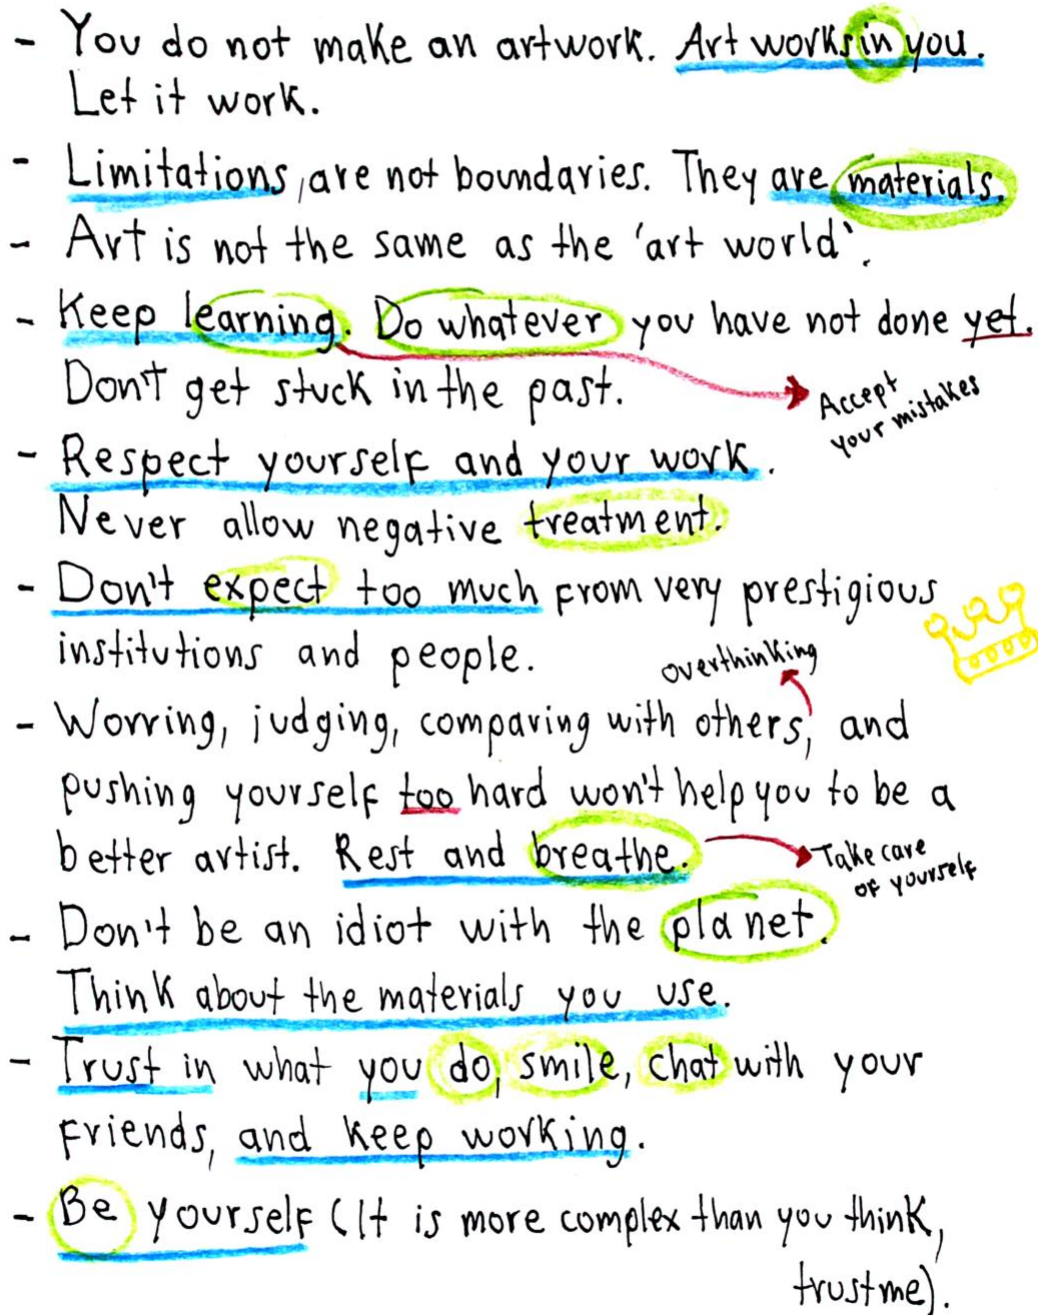 - You do not make an artwork. Art works in you.
Let it work.
- Limitations, are not boundaries. They are materials.
- Art is not the same as the 'art world'.
- Keep learning. Do whatever you have not done yet.
Don't get stuck in the past.
Accept
your mistakes
- Respect yourself and your work.
Never allow negative treatment.
- Don't expect too much from very prestigious
institutions and people.
overthinking
- Worring, judging, comparing with others, and
pushing yourself too hard won't help you to be a
better artist. Rest and breathe.
Take care
of yourself
- Don't be an idiot with the planet.
Think about the materials you use.
- Trust in what you do, smile, chat with your
friends, and keep working.
- Be yourself (It is more complex than you think,
trust me).